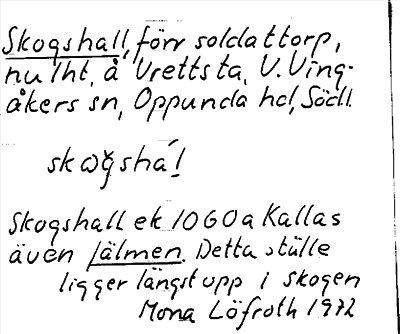 Skogshall, förr soldattorp,
nu lht, å Vrettsta, V. Ving-
åkers sn, Oppunda hd, Södl.
skωğshá'l
Skogshall ek 1060a Kallas
även Jälmen. Detta ställe
ligger längst upp i skogen
Mona Löfroth 1972